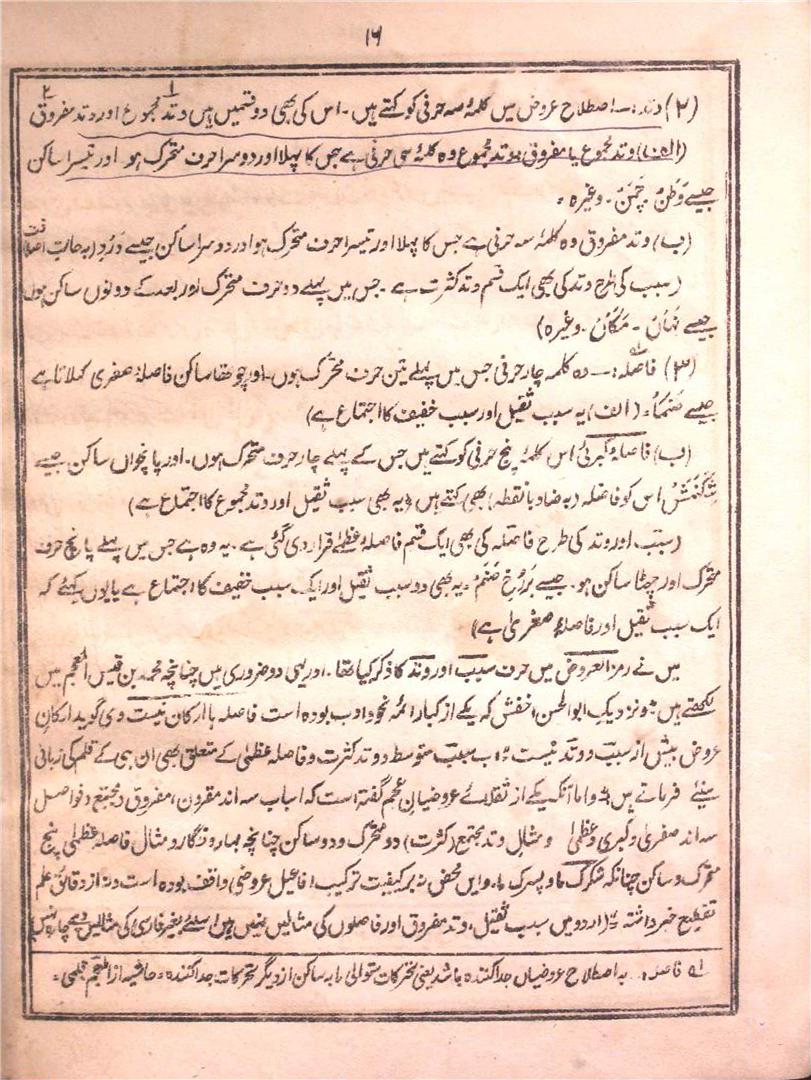 ۱۶
(۲) وتد :۔ اصطلاح عروض میں کلمۂ سہ حرفی کو کہتے ہیں ۔ اس کی بھی دو قسمیں ہیں وتد مجموع اور وتد مفروق
(الف) وتد مجموع یا مفروق، وتد مجموع وہ کلمۂ سی حرفی ہے جس کا پہلا اور دوسرا حرف متحرک ہو اور تیسرا ساکن
جیسے وَطَنْ ۔ چَمَنْ ۔ وغیرہ ۔
(ب) وتد مفروق وہ کلمۂ سہ حرفی ہے جس کا پہلا اور تیسرا حرف متحرک ہو اور دوسرا ساکن جیسے دَرْدِ (بہ حالت اضافت
(سبب کی طرح وتد کی بھی ایک قسم وتد کثرت ہے ۔ جس میں پہلے دو حرف متحرک اور بعد کے دونوں ساکن ہوں
جیسے نہاں ۔ مکان ۔ وغیرہ)
(۳) فاصلہ :۔ وہ کلمہ چار حرفی جس میں پہلے تین حرف متحرک ہوں ۔ اور چوتھا ساکن فاصلۂ صغری کہلاتا ہے
جیسے صَنَماْ ۔ (الف) یہ سبب ثقیل اور سبب خفیف کا اجتماع ہے)
(ب) فاصلۂ کبریٰ اس کلمۂ پنج حرفی کو کہتے ہیں جس کے پہلے چار حرف متحرک ہوں ۔ اور پانچواں ساکن جیسے
شِکَنَمَشْ اس کو فاضلہ (بہ ضاد با نقطہ) بھی کہتے ہیں (یہ بھی سبب ثقیل اور وتد مجموع کا اجتماع ہے)
(سبب اور وتد کی طرح فاصلہ کی بھی ایک قسم فاصلۂ عظمیٰ قرار دی گئی ہے ۔ یہ وہ ہے جس میں پہلے پانچ حرف
متحرک اور چھٹا ساکن ہو ۔ جیسے بَرُخِ صَنَمْ ۔ یہ بھی دو سبب ثقیل اور ایک سبب خفیف کا اجتماع ہے یا یوں کہئے کہ
ایک سبب ثقیل اور فاصلۂ صغریٰ ہے)
میں نے رمز العروض میں حرف سبب اور وتد کا ذکر کیا تھا ۔ اور یہی دو ضروری ہیں چنانچہ محمد بن قیس المعجم میں
لکھتے ہیں ونزدیک ابوالحسن اخفش کہ یکے از کبار ائمہ نحو و ادب بودہ است فاصلہ با ارکان نیست و می گوید ارکان
عروض بیش از سبب و وتد نیست ؛ اب سبب متوسط و وتد کثرت و فاصلہ عظمیٰ کے متعلق بھی ان ہی کے قلم کی زبانی
سنئے فرماتے ہیں و اما آنکہ یکے از ثقلائے عروضیان عجم گفتہ است کہ اسباب سہ اند مقرون، مفروق و مجتمع و فواصل
سہ اند صغریٰ و کبریٰ و عظمیٰ و مثال وتد مجتمع (کثرت) دو متحرک و دو ساکن چنانچہ بہار و نگار و مثال فاصلہ عظمیٰ پنج
متحرک و ساکن چنانکہ شکرک ما و پسرک ما، و ایں محض نہ بر کیفیت ترکیب افاعیل عروضی واقف بودہ است و نہ از دقائق علم
تقطیع خبر داشتہ (اردو میں سبب ثقیل، وتد مفروق اور فاصلوں کی مثالیں نہیں ہیں اسلئے بغیر فارسی کی مثالیں دیے چارہ نہیں)
لہ فاصلہ :۔ بہ اصطلاح عروضیاں جدا کنندہ باشد یعنی متحرکات متوالی را بہ ساکن از دیگر متحرکات جدا کنندہ ۔ حاشیہ از المعجم قلمی ۔